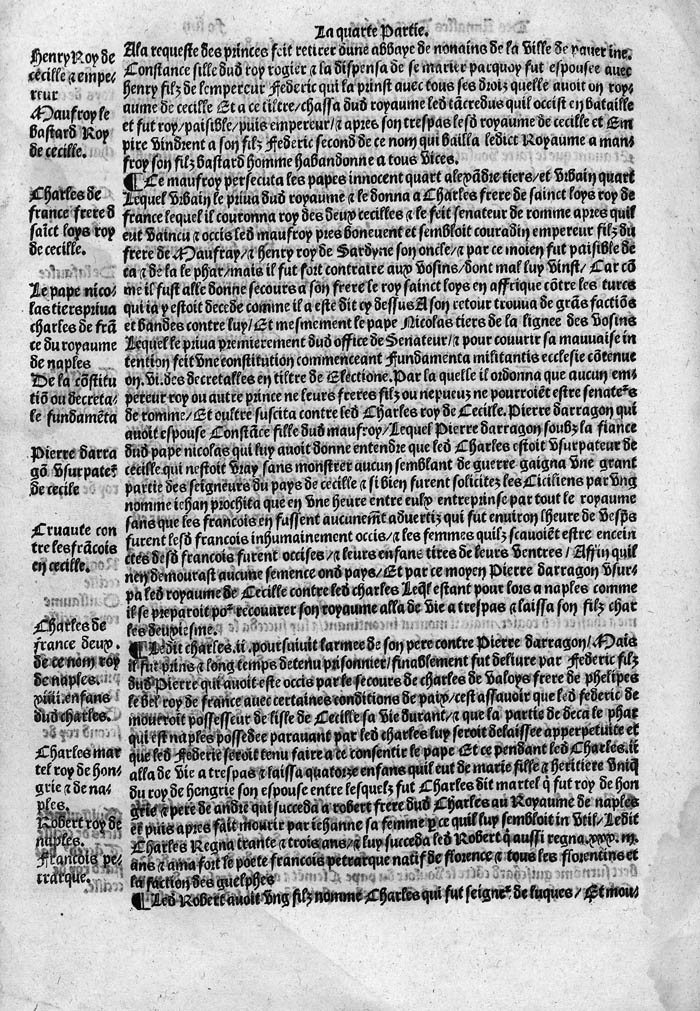 La quarte Partie.
Henry Roy de
cecille & empe-
reur
Maufroy le
bastard Roy
de cecille.
Charles de
france frere d
saīct loys roy
de cecille.
Le pape nico-
las tiers priva
charles de frā
ce du royaume
de naples
De la cōstitu
tiō ou decreta-
le fundamēta
Pierre darra
gō vsurpateᷣ
de cecile
Cruaute con
tre les frācois
en cecille.
Charles de
france deux.
de ce nom roy
de naples.
xiiii. enfans
dud charles.
Charles mar
tel roy de hon-
grie & de na-
ples.
Robert roy de
naples.
Francois pe-
trarque.
A la requeste des princes feit retirer dune abbaye de nonains de la ville de
Constance fille dud roy rogier & la dispensa de se marier parquoy fut espousee avec
henry filz de lempereur Federic qui la prinst avec tous ses droiz quelle avoit on roy-
aume de cecille Et a ce tiltre/ chassa dud royaume led tācredus quil occist en bataille
et fut roy/paisible/puis empereur/& apres son trespas led royaume de cecille et Em
pire vindrent a son filz Federic second de ce nom qui bailla ledict Royaume a man-
froy son filz bastard homme habandonne a tous vices.
¶ Ce maufroy persecuta les papes innocent quart alexādre tiers/et Vrbain quart
Lequel Vrbain le priva dud royaume & le donna a Charles frere de sainct loys roy de
france lequel il couronna roy des deux cecilles & le feit senateur de romme apres quil
eut vaincu & occis led maufroy pres bonevent et sembloit couradin empereur filz du
frere de Maufray/& henry roy de Sardyne son oncle/& par ce moien fut paisible de
ca & de la le phar/mais il fut fort contraire aux Vosins/dont mal luy vinst/ Car cō
me il fust alle donne secours a son frere le roy sainct loys en affrique cōtre les turcs
qui ia y estoit decede comme il a este dit cy dessus A son retour trouva de grās factiōs
et bandes contre luy/Et mesmement le pape Nicolas tiers de la lignee des Vosins
Lequel le priva premierement dud office de Senateur/& pour couurir sa mauuaise in
tention feit vne constitution commenceant Fundamenta militantis ecclesie cōtenue
on. vi. des decretalles en tiltre de Electione. Par la quelle il ordonna que aucun em-
pereur roy ou autre prince ne leurs freres filz ou nepueuz ne pourroiēt estre senateᷣs
de romme/Et oultre suscita contre led Charles roy de Cecille. Pierre darragon qui
auoit espouse Constāce fille dud maufroy/Lequel Pierre darragon soubz la fiance
dud pape nicolas qui luy auoit donne entendre que led Charles estoit vsurpateur de
cecille qui nestoit vray sans monstrer aucun semblant de guerre gaigna vne grant
partie des seigneurs du pays de cecille & si bien furent solicitez les Ciciliens par vng
nomme iehan prochita que en vne heure entre eulx entreprinse par tout le royaume
sans que les francois en fussent aucunemt advertiz qui fut environ lheure de vespᷣs
furent lesd francois inhumainement occis/& les femmes quilz scauoiēt estre encein
ctes desd francois furent occises/& leurs enfans tires de leurs ventres/ Affin quil
nen demourast aucune semence ond pays/Et par ce moyen Pierre darragon vsur-
pa led royaume de Cecille contre led charles Leql estant pour lors a naples comme
il se preparoit poᷣ recouvrer son royaume alla de vie a trespas & laissa son filz char
les deuxiesme.
¶ Ledit charles. ii. poursuiuit larmee de son pere contre Pierre darragon/Mais
il fut prins & long temps detenu prisonnier/finablement fut delivre par Federic filz
dud Pierre qui avoit este occis par le secours de charles de valoys frere de phelipes
le bel roy de france avec certaines conditions de paix/cest assavoir que led federic de
moureroit possesseur de lisle de Cecille sa vie durant/& que la partie de deca le phar
qui est naples possedee paravant par led charles luy seroit delaissee apperpetuite et
que led Federic seroit tenu faire a ce consentir le pape Et ce pendant led Charles. ii
alla de vie a trespas & laissa quatorze enfans quil eut de marie fille & heritiere vniq̄
du roy de hongrie son espouse entre lesquelz fut Charles dit martel q̄ fut roy de hon
grie & pere de andre qui succeda a robert frere dud Charles au Royaume de naples
et puis apres fait mourir par iehanne sa femme p ce quil luy sembloit in vtil/ Ledit
Charles Regna trante & trois ans/& luy succeda led Robert q̄ aussi regna. xxx. iii.
ans & ama fort le poete francois petrarque natif de florence & tous les florentins et
la faction des guelphes
¶ Led Robert avoit vng filz nomme Charles qui fut seignᷣ de luques/ Et mou-